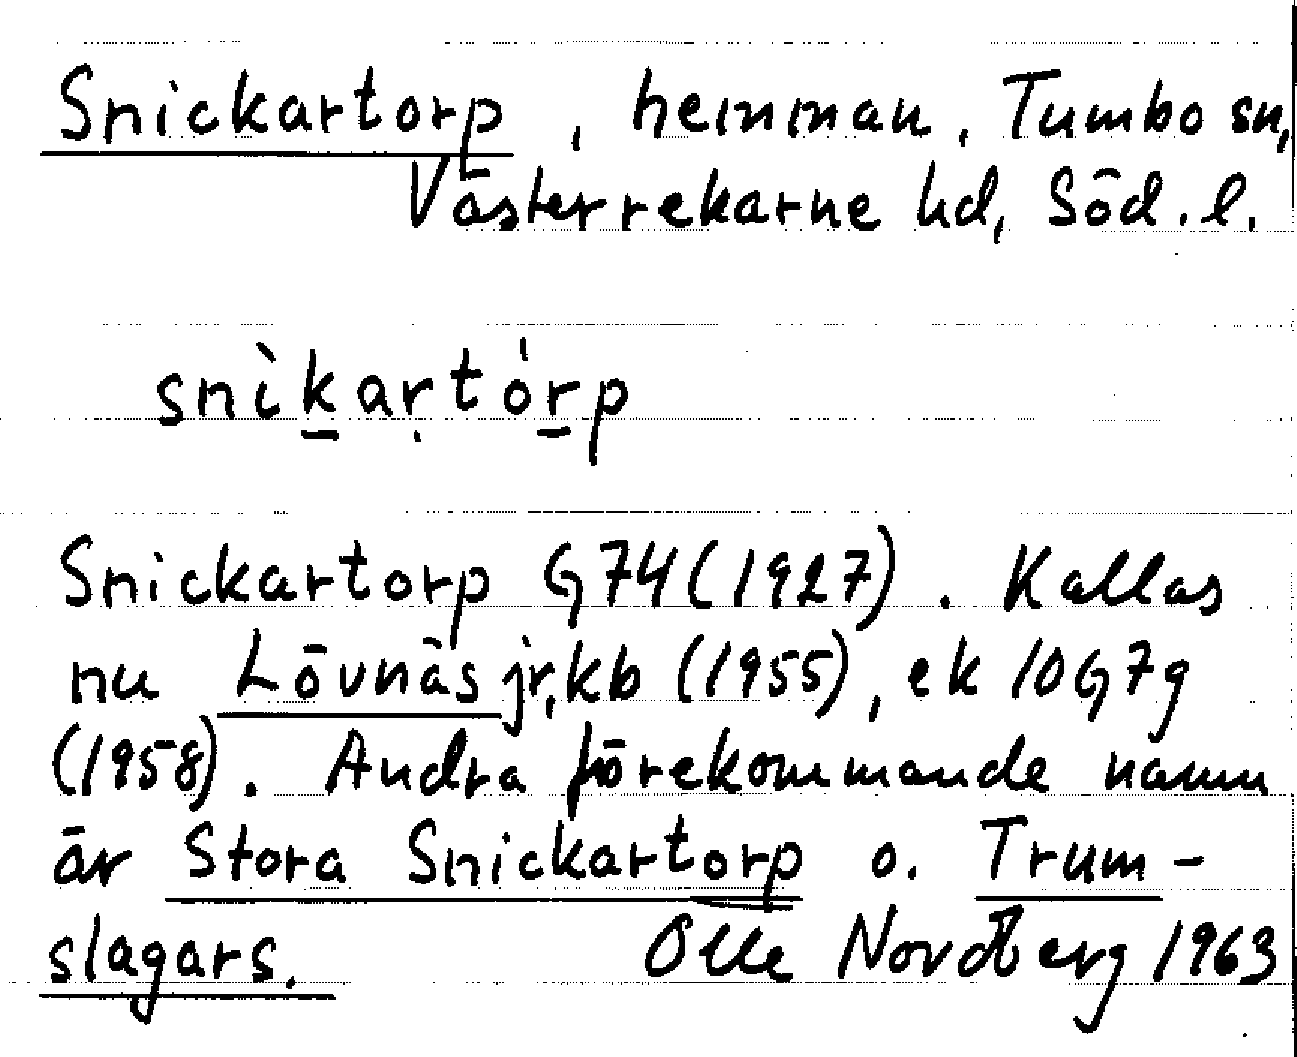 Snickartorp, hemman, Tumbo sn,
Västerrekarne hd, Söd. l.
snìk̲aṛtór̲p
Snickartorp G74(1927). Kallas
nu Lövnäs jr,kb (1955), ek 10G7g
(1958). Andra förekommande namn
är Stora Snickartorp o. Trum-
slagars.
Olle Nordberg 1963